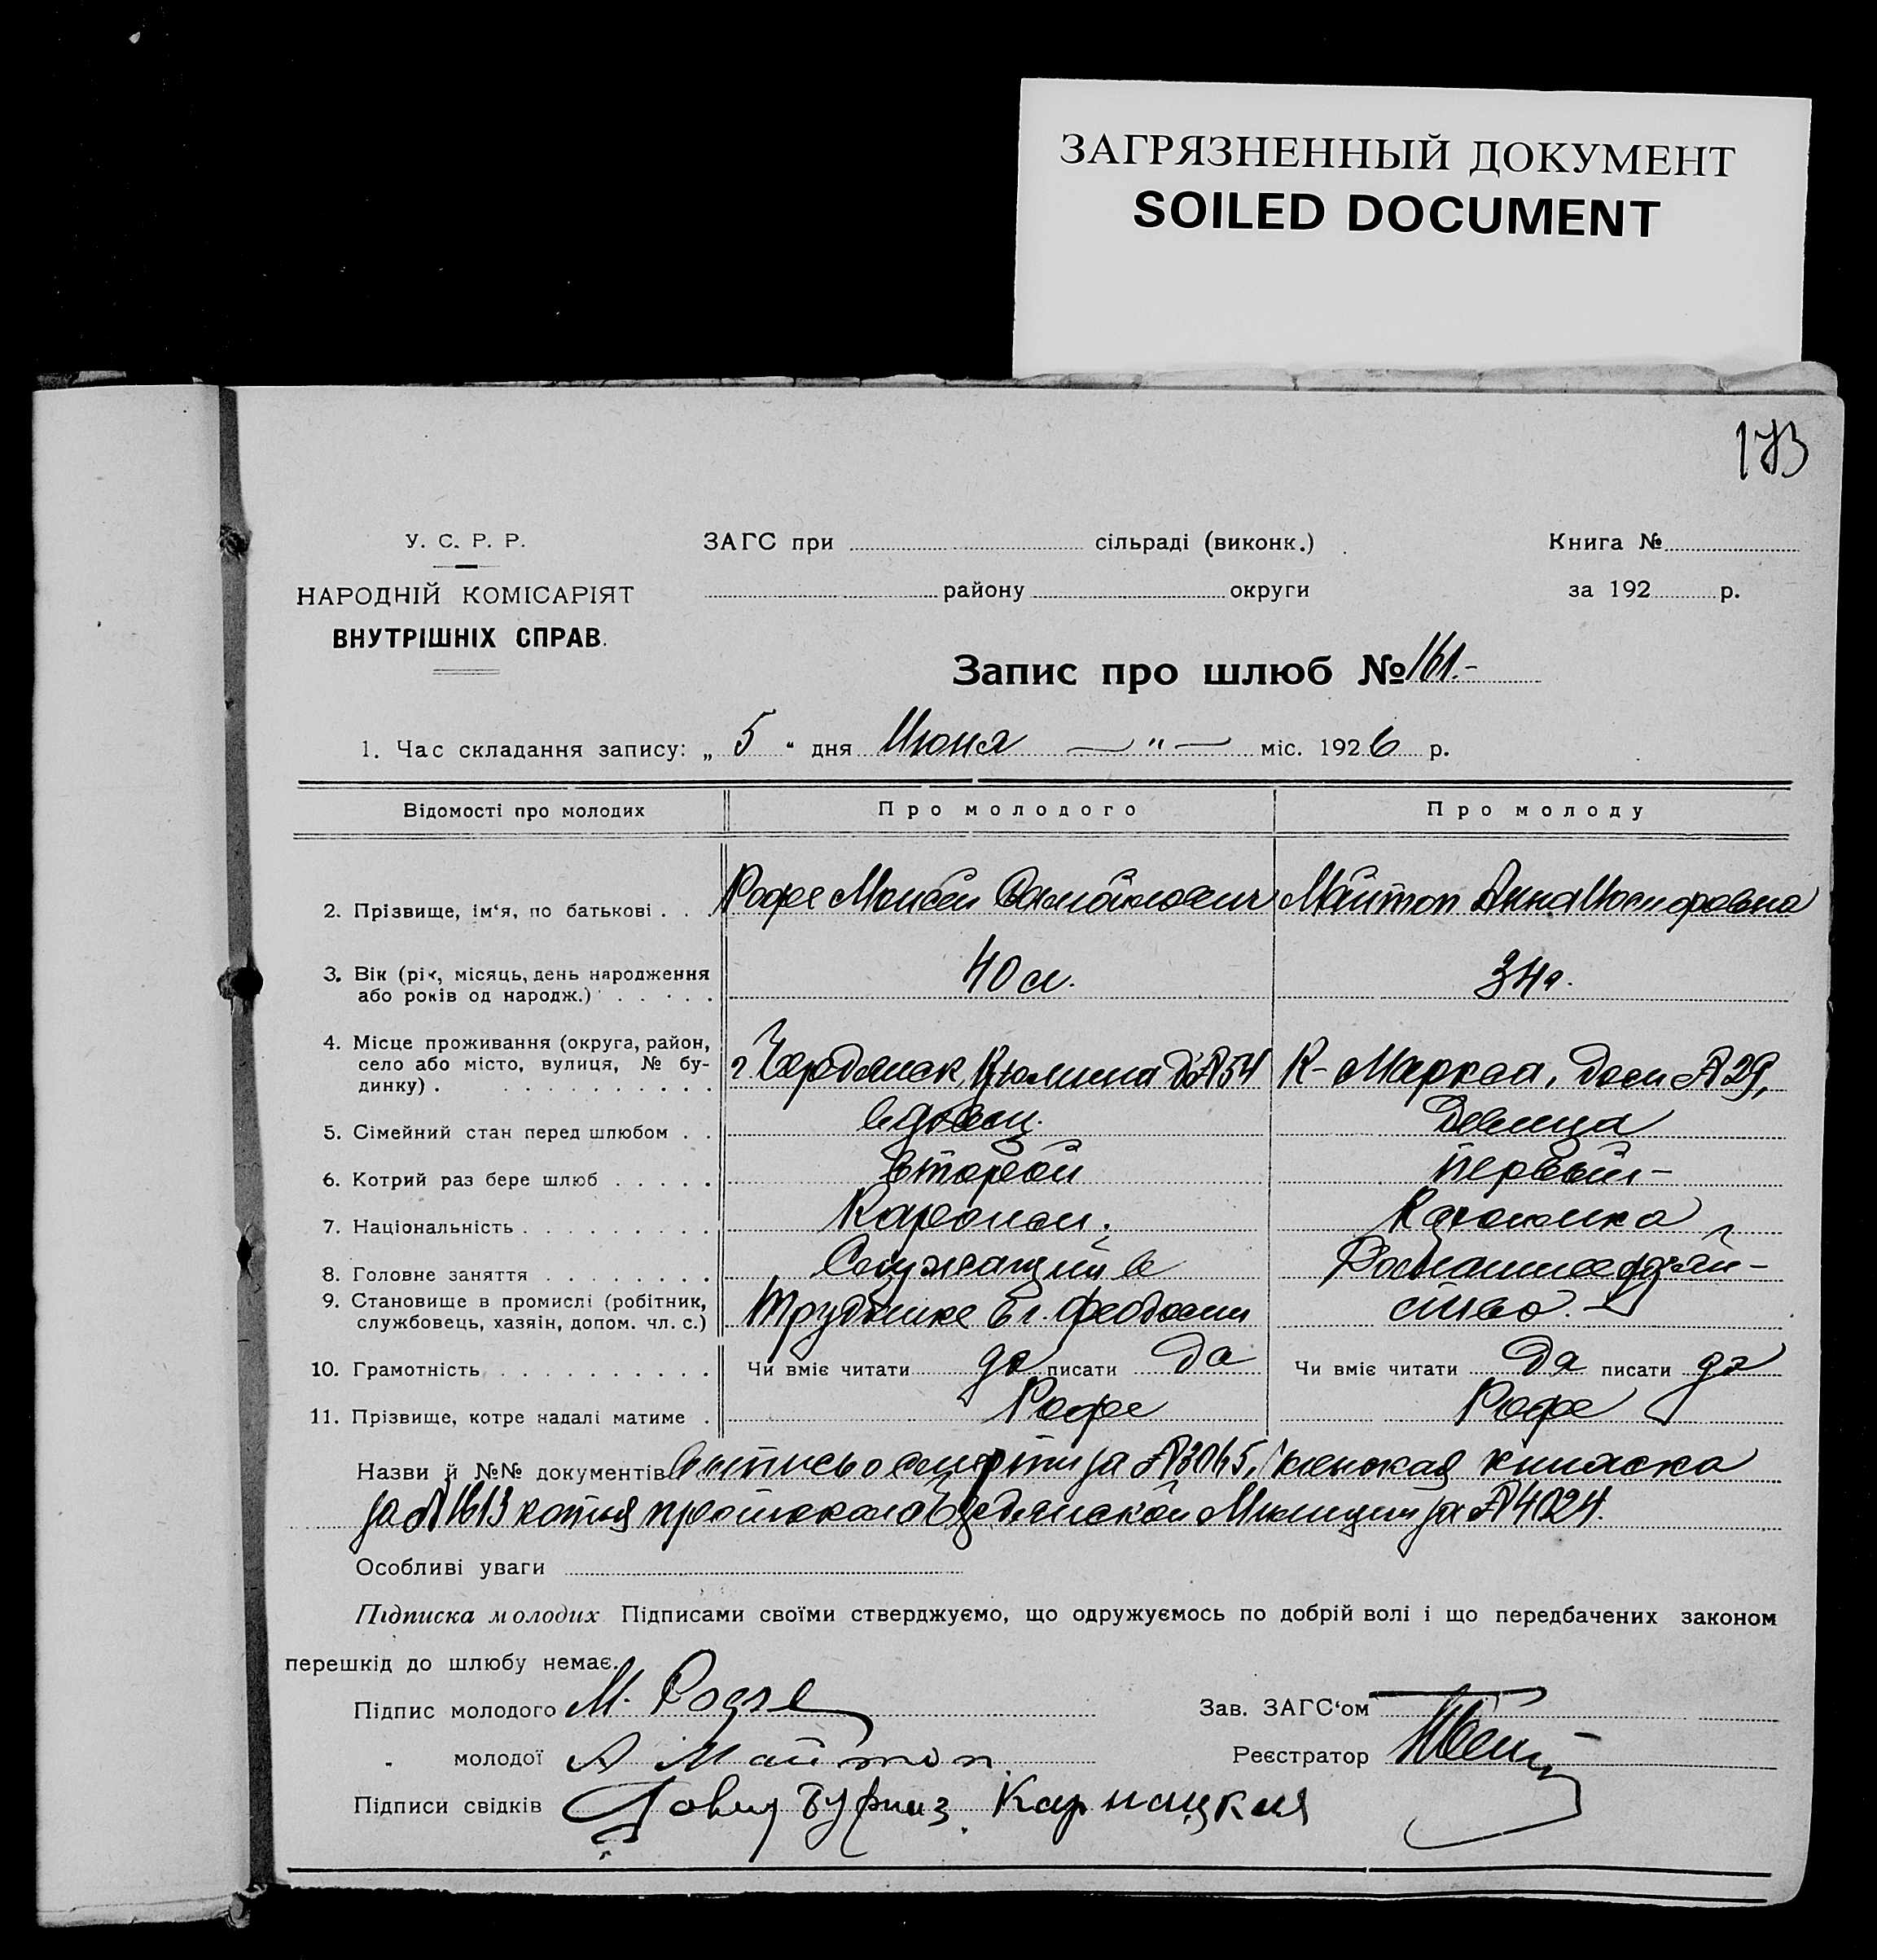 ЗАГРЯЗНЕННЫЙ ДОКУМЕНТ
SOILED DOCUMENT
173
У. С. Р. Р.
НАРОДНІЙ КОМІСАРІЯТ
ВНУТРІШНІХ СПРАВ.
ЗАГС при сільраді (виконк.)
району округи
Книга №
за 192 р.
Запис про шлюб № 161.-
1. Час складання запису: „ 5 " дня Июня — " — міс. 1926 р.
Відомості про молодих Про молодого Про молоду
2. Прізвище, ім'я, по батькові . . . Рофе Моисей Самойлович Майтоп Анна Иосифовна
3. Вік (рік, місяць, день народження
або років од народж.) . . . . . 40 л. 34 г.
4. Місце проживання (округа, район,
село або місто, вулиця, № бу-
динку) . . . . . . . . . . г. д. № 54 К-Маркса, дом № 29,
5. Сімейний стан перед шлюбом . . вдовец. Девица
6. Котрий раз бере шлюб . . . . . второй первый-
7. Національність . . . . . . . . . Караим.
8. Головне заняття . . . . . . . . Служащий в
9. Становище в промислі (робітник,
службовець, хазяін, допом. чл. с.) в г. Феодосии ство.
10. Грамотність . . . . . . . . . . Чи вміє читати да писати да Чи вміє читати да писати да
11. Прізвище, котре надалі матиме . Рофе Рофе
Назви й №№ документів выпись о смерти за № 3065, книжка
за № 1613 копия протокола Милиции за № 4024.
Особливі уваги
Підписка молодих Підписами своїми стверджуємо, що одружуємось по добрій волі і що передбачених законом
перешкід до шлюбу немає.
Підпис молодого М. Рофе
Зав. ЗАГС'ом
" молодої А Майтоп
Реєстратор
Підписи свідків